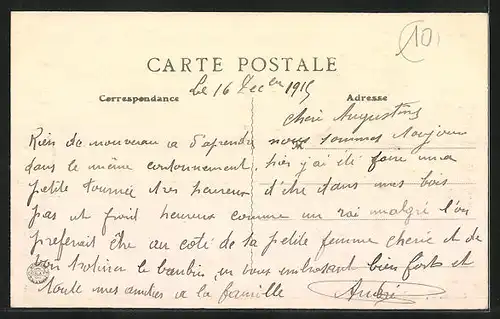 (10)
CARTE POSTALE
Le 16 Decem 1915
Correspondance
Adresse
cheri Augustine
Rien de nouveau a d'aprendre nous sommes toujours
dans le même cantonnement, hier j'ai été faire une
petite tournée tres heureux d'être dans mes bois
pas et froid heureux comme un roi malgré l'on
preferait être au coté de sa petite femme cherie et de
son le bambin, en vous embrasant bien forts et
toute mes amities a la famille André